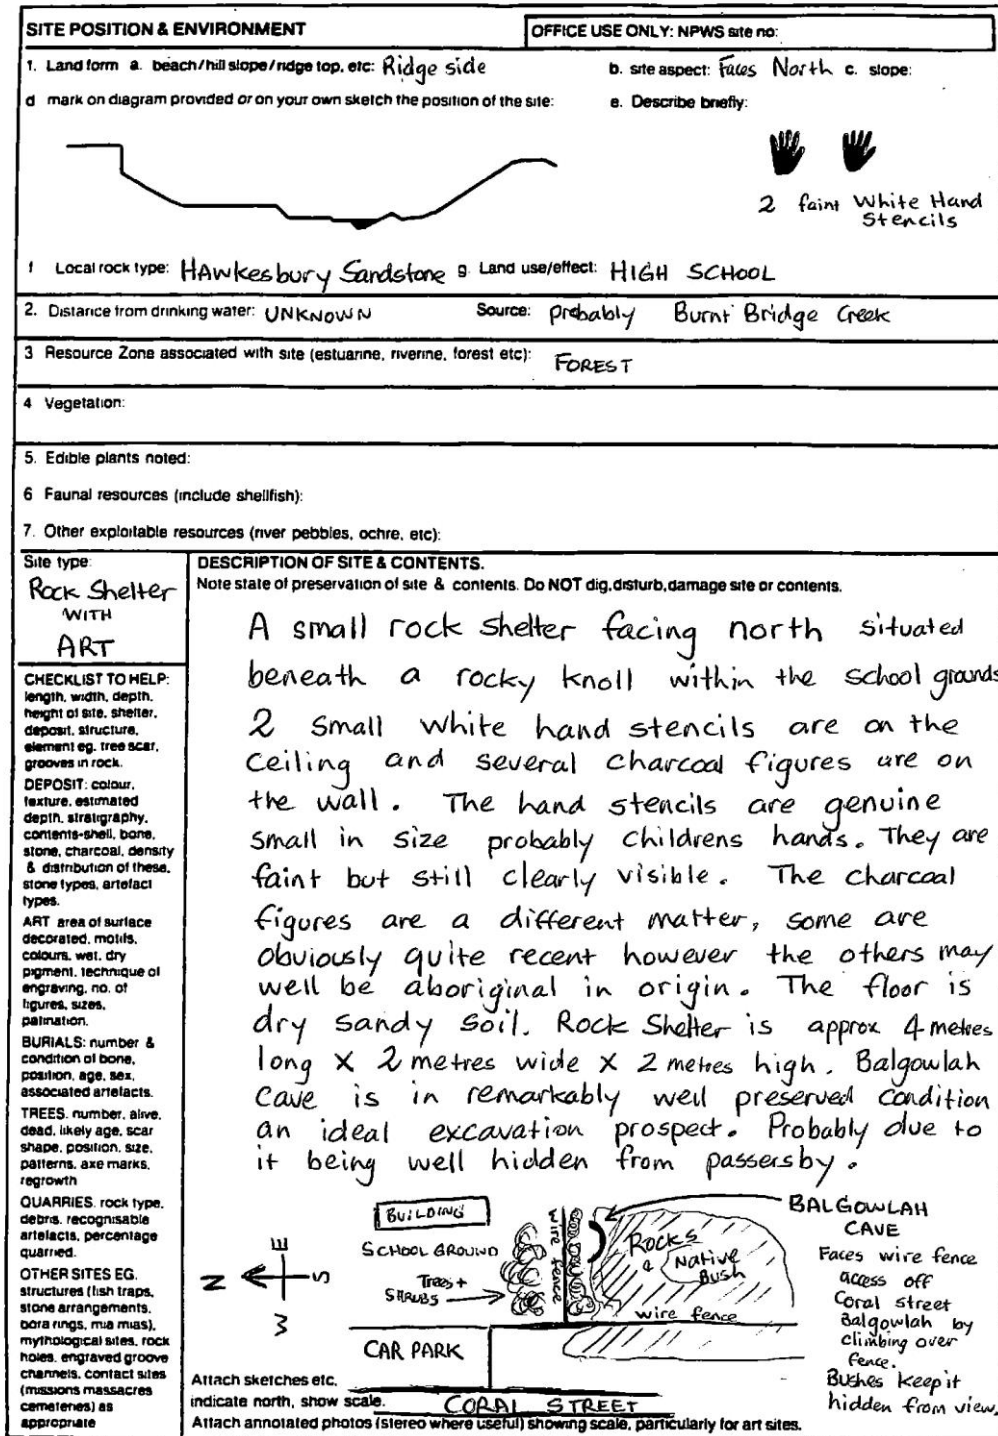 SITE POSITION & ENVIRONMENT
OFFICE USE ONLY: NPWS site no:
1. Land form a. beach/hill slope/ridge top, etc: Ridge side
b. site aspect: Faces North c. slope:
d mark on diagram provided or on your own sketch the position of the site:
e. Describe briefly:
2 faint White Hand
Stencils
f Local rock type: HAwkesbury Sandstone g. Land use/effect: HIGH SCHOOL
2. Distance from drinking water: UNKNOWN Source: probably Burnt Bridge Creek
3 Resource Zone associated with site (estuarine, riverine, forest etc): FOREST
4 Vegetation:
5. Edible plants noted:
6 Faunal resources (include shellfish):
7. Other exploitable resources (river pebbles, ochre, etc):
Site type:
Rock Shelter
WITH
ART
CHECKLIST TO HELP:
length, width, depth,
height of site, shelter,
deposit, structure,
element eg. tree scar,
grooves in rock.
DEPOSIT: colour,
texture, estimated
depth, stratigraphy,
contents-shell, bone,
stone, charcoal, density
& distribution of these,
stone types, artefact
types.
ART area of surface
decorated, motifs,
colours, wet, dry
pigment, technique of
engraving, no. of
figures, sizes,
patination.
BURIALS: number &
condition of bone,
position, age, sex,
associated artefacts.
TREES. number, alive,
dead, likely age, scar
shape, position, size,
patterns, axe marks,
regrowth
QUARRIES. rock type,
debris, recognisable
artefacts, percentage
quarried.
OTHER SITES EG.
structures (fish traps,
stone arrangements,
bora rings, mia mias),
mythological sites, rock
holes, engraved groove
channels, contact sites
(missions massacres
cemeteries) as
appropriate
DESCRIPTION OF SITE & CONTENTS.
Note state of preservation of site & contents. Do NOT dig, disturb, damage site or contents.
A small rock shelter facing north situated
beneath a rocky knoll within the school grounds
2 small white hand stencils are on the
ceiling and several charcoal figures are on
the wall. The hand stencils are genuine
small in size probably childrens hands. They are
faint but still clearly visible. The charcoal
figures are a different matter, some are
obviously quite recent however the others may
well be aboriginal in origin. The floor is
dry sandy soil. Rock Shelter is approx 4 metres
long X 2 metres wide X 2 metres high. Balgowlah
cave is in remarkably well preserved condition
an ideal excavation prospect. Probably due to
it being well hidden from passersby.
BUILDING
SCHOOL GROUND
Trees +
SHRUBS
wire fence
Rocks
&
Native
Bush
wire fence
N
E
S
W
CAR PARK
CORAL STREET
BALGOWLAH
CAVE
Faces wire fence
access off
Coral street
Balgowlah by
climbing over
fence.
Bushes keep it
hidden from view.
Attach sketches etc.
indicate north, show scale.
Attach annotated photos (stereo where useful) showing scale, particularly for art sites.